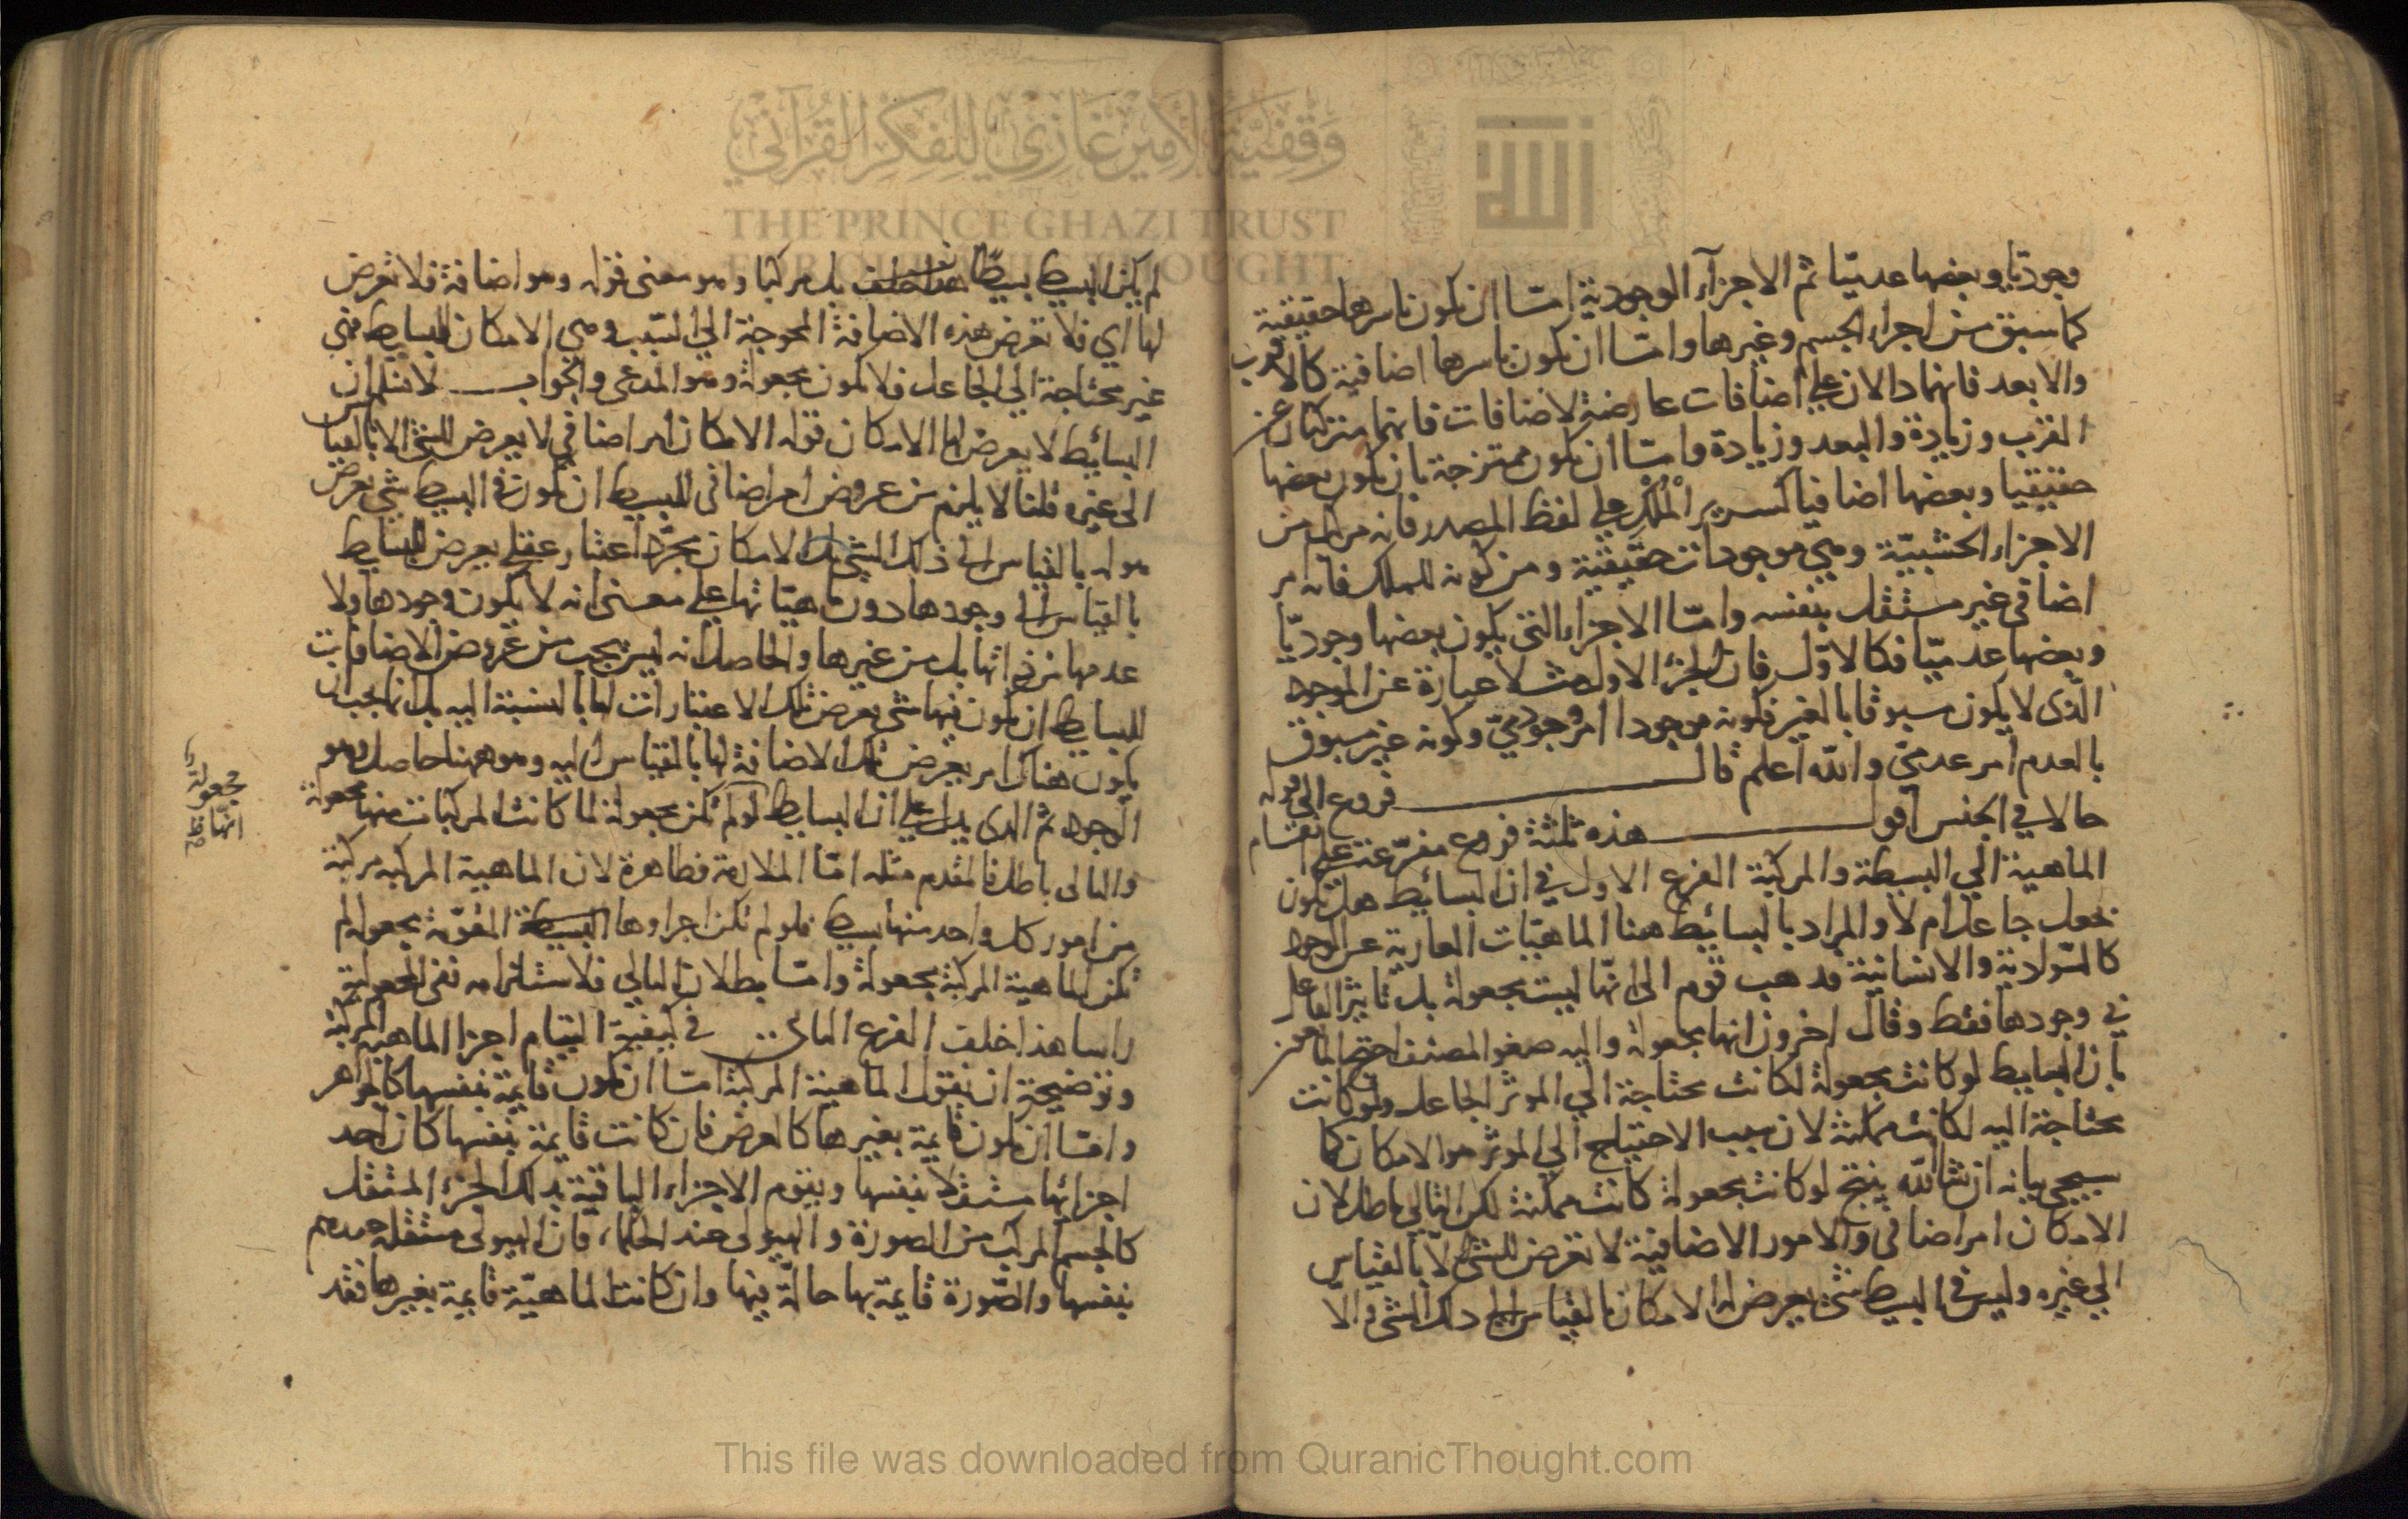 وجوديا وبعضها عدميا ثم الاجزاء الوجودية امّا ان تكون باسرها حقيقية
كما سبق من اجزاء الجسم وغيرها وامّا ان تكون باسرها اضافية كالاقرب
والابعد فانهما دالان على اضافات عارضة لاضافات فانهما متركبان عن
القرب وزيادة والبعد وزيادة وامّا ان تكون ممتزجة بان يكون بعضها
حقيقيا وبعضها اضافيا كسرير الْمُلْكِ على لفظ المصدر فانه مركب من
الاجزاء الخشبيّة وهي موجودات حقيقية ومن كونه للملك فانه امر
اضافي غير مستقل بنفسه وامّا الاجزاء التى يكون بعضها وجوديّا
وبعضها عدميّا فكالاوّل فان الجزء الاول مثلا عبارة عن الموجود
الّذى لا يكون مسبوقا بالغير فكونه موجودا امر وجودىّ وكونه غير مسبوق
بالعدم امر عدمىّ والله اعلم قال فروع الى قوله
حالا في الجنس اقول هذه ثلثة فروع مفرّعة على انقسام
الماهية الى البسيطة والمركبة الفرع الاول في ان البسائيط هل تكون
بجعل جاعل ام لا والمراد بالبسائيط هنا الماهيّات العارية عن الوجود
كالسّوادية والانسانية فذهب قوم الى انّها ليست بجعولة بل تاثير الفاعل
في وجودها فقط وقال اخرون انها مجعولة واليه صغو المصنف احتج المانعون
بان البسايط لو كانت مجعولة لكانت محتاجة الى الموثر الجاعل ولو كانت
محتاجة اليه لكانت ممكنة لان سبب الاحتياج الى الموثر هو الامكان كما
سيجي بيانه ان شا الله ينتج لو كانت مجعولة كانت ممكنة لكن التالي باطل لان
الامكان امر اضافى والامور الاضافية لا تعرض للشئ الا بالقياس
الى غيره وليس في البسيط شئ يعرض له الامكان بالقياس الى ذلك الشئ والا
لم يكن البسيط بسيطًا هذا خلف بل مركبا وهو معنى قوله وهو اضافة فلا تعرض
لها اي فلا تعرض هذه الاضافة المحوجة الى السّبب وهي الامكان للبسايط فهى
غير محتاجة الى الجاعل فلا تكون مجعولة وهو المدعى والجواب لا نسلم ان
البسائيط لا يعرض لها الامكان قوله الامكان امر اضافي لا يعرض للشئ الا بالقياس
الى غيره قلنا لا يلزم من عروض امر اضافى للبسيط ان يكون في البسيط شئ يعرض
هو له بالقياس الى ذلك الشئ بل الامكان مجرّد اعتبار عقلي يعرض للبسايط
بالقياس الى وجودها دون ماهيّاتها على معنى انه لا يكون وجودها ولا
عدمها من ذاتها بل من غيرها والحاصل انه ليس يجب من عروض الاضافات
للبسايط ان يكون فيها شئ يعرض تلك الاعتبارات لها بالنسبة اليه بل انما يجب ان
يكون هناك امر يعرض تلك الاضافة لها بالقياس اليه وهو ههنا حاصل وهو
الوجود ثم الذى يدل على ان البسايط لو لم تكن مجعولة لما كانت المركبات منها مجعولة
والتالى باطل فالمقدم مثله امّا الملازمة فظاهرة لان الماهية المركبة مركبة
من امور كل واحد منها بسيط فلو لم تكن اجزاوها البسيطة المقوّمة مجعولة لم
تكن الماهية المركبة مجعولة وامّا بطلان التالي فلاستلزامه نفى المجعولية
راسا هذا خلف الفرع الثانى في كيفية التيام اجزا الماهية المركبة
وتوضيحة ان نقول الماهية المركبة امّا ان تكون قايمة بنفسها كالجواهر
وامّا ان تكون قايمة بغيرها كالعرض فان كانت قايمة بنفسها كان احد
اجزائها مستقلا بنفسها ويقوم الاجزاء الباقية بذلك الجزء المستقل
كالجسم المركب من الصورة والهيولى عند الحكماء فان الهيولى مستقلة عندهم
بنفسها والصّورة قايمة بها حالّة فيها وان كانت الماهيّة قايمة بغيرها فقد
وَقْفِيَّةُ الأَمِيرِ غَازِي لِلْفِكْرِ القُرْآنِي
THE PRINCE GHAZI TRUST
FOR QUR'ANIC THOUGHT
This file was downloaded from QuranicThought.com